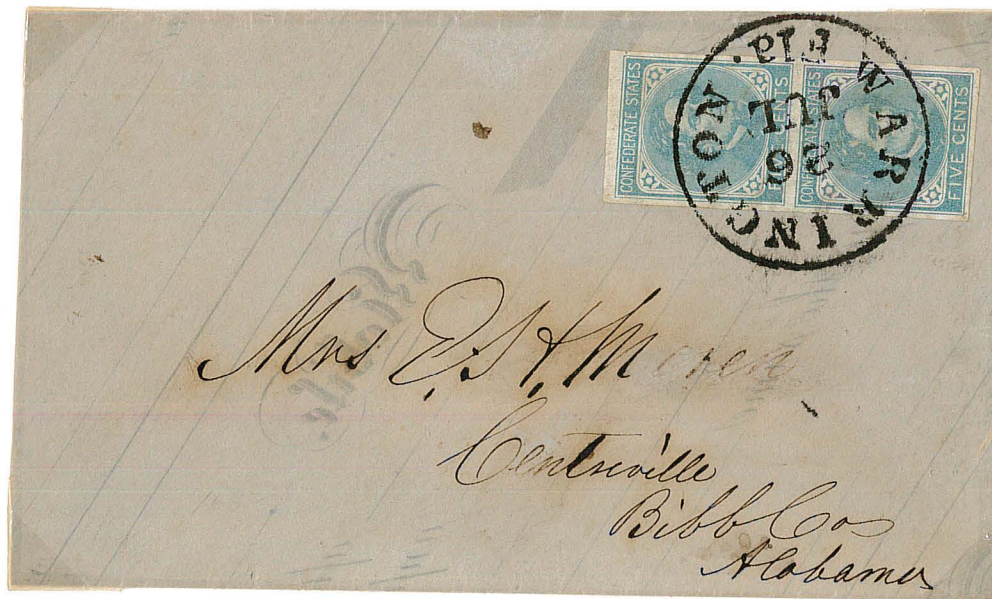 CONFEDERATE STATES
FIVE CENTS
CONFEDERATE STATES
FIVE CENTS
WARRINGTON
Fla.
JUL
26
Mrs E. S. H. Moren
Centreville
Bibb Co
Alabama